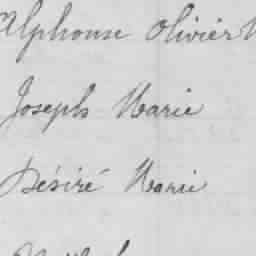 Alphonse Olivier
Joseph Marie
Désiré Marie